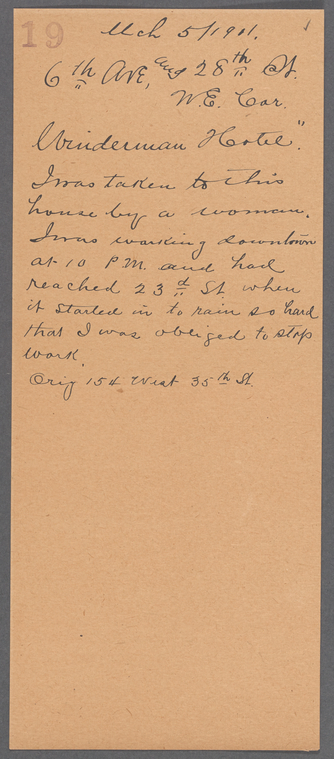 19
Mch 5/1901.
6th Ave, and 28th St.
N.E. Cor.
Winderman Hotel".
I was taken to this
house by a woman.
I was working downtown
at 10 P.M. and had
reached 23d St. when
it started in to rain so hard
that I was obliged to stop
work.
Orig 154 West 35th St.